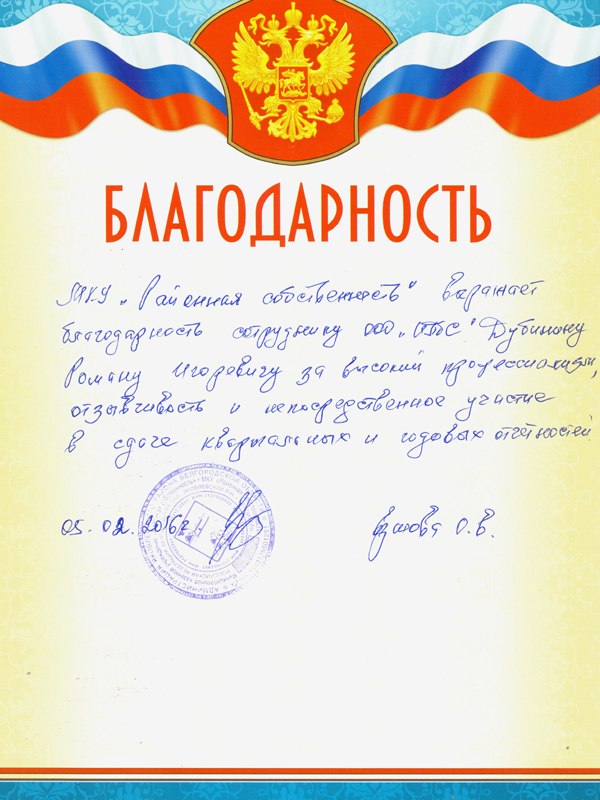 БЛАГОДАРНОСТЬ
МКУ „Районная собственность" выражает
благодарность сотруднику ООО „ Дубинину
Роману Игоревичу за высокий профессионализм,
отзывчивость и непосредственное участие
в сдаче квартальных и годовых отчётностей
05.02.2016г
О.В.